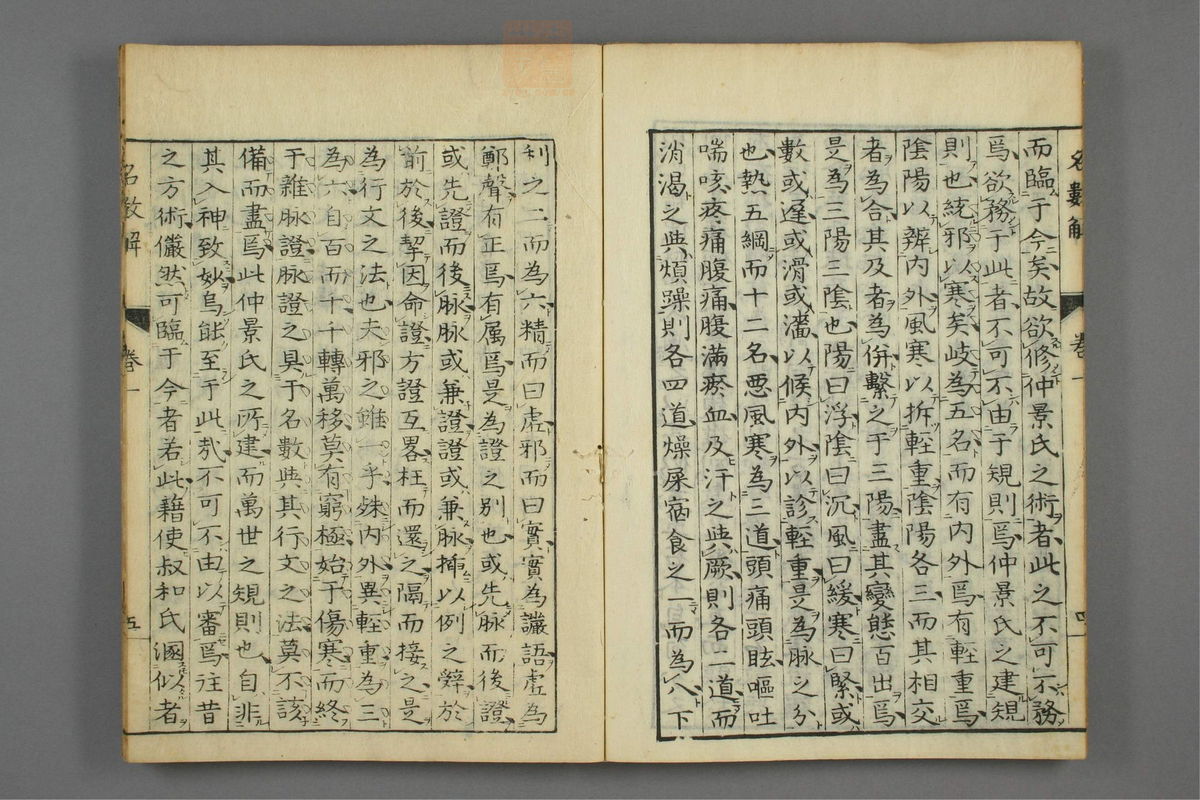 名數解
卷一
四
而臨于今矣故欲修仲景氏之術者此之不可不務
焉欲務于此者不可不由于規則焉仲景氏之建規
則也統邪以寒矣岐為五名而有内外焉有輊重焉
陰陽以辨内外風寒以拆輊重陰陽各三而其相交
者為合其及者為併繫之于三陽盡其變態百出焉
是為三陽三陰也陽曰浮陰曰沉風曰緩寒曰緊或
數或遅或滑或濇以候内外以診輊重是為脉之分
也熱五綱而十二名悪風寒為三道頭痛頭眩嘔吐
喘咳疼痛腹痛腹滿瘀血及汗之與厥則各二道而
消渴之與煩躁則各四道燥屎宿食之一而為八下
利之二而為六精而曰虛邪而曰實實為讝語虛為
鄭聲有正焉有属焉是為證之别也或先脉而後證
或先證而後脉脉或兼證證或兼脉揷以例之辤於
前於後挈因命證方證互畧枉而還之隔而接之是
為行文之法也夫邪之雖一乎殊内外異輊重為三
為六自百而千千轉萬移莫有窮極始于傷寒而終
于雜脉證脉證之具于名數與其行文之法莫不該
備而盡焉此仲景氏之所建而萬世之規則也自非
其入神致妙烏能至于此㢤不可不由以審焉往昔
之方術儼然可臨于今者若此藉使叔和氏溷似者
名數解
卷一
五